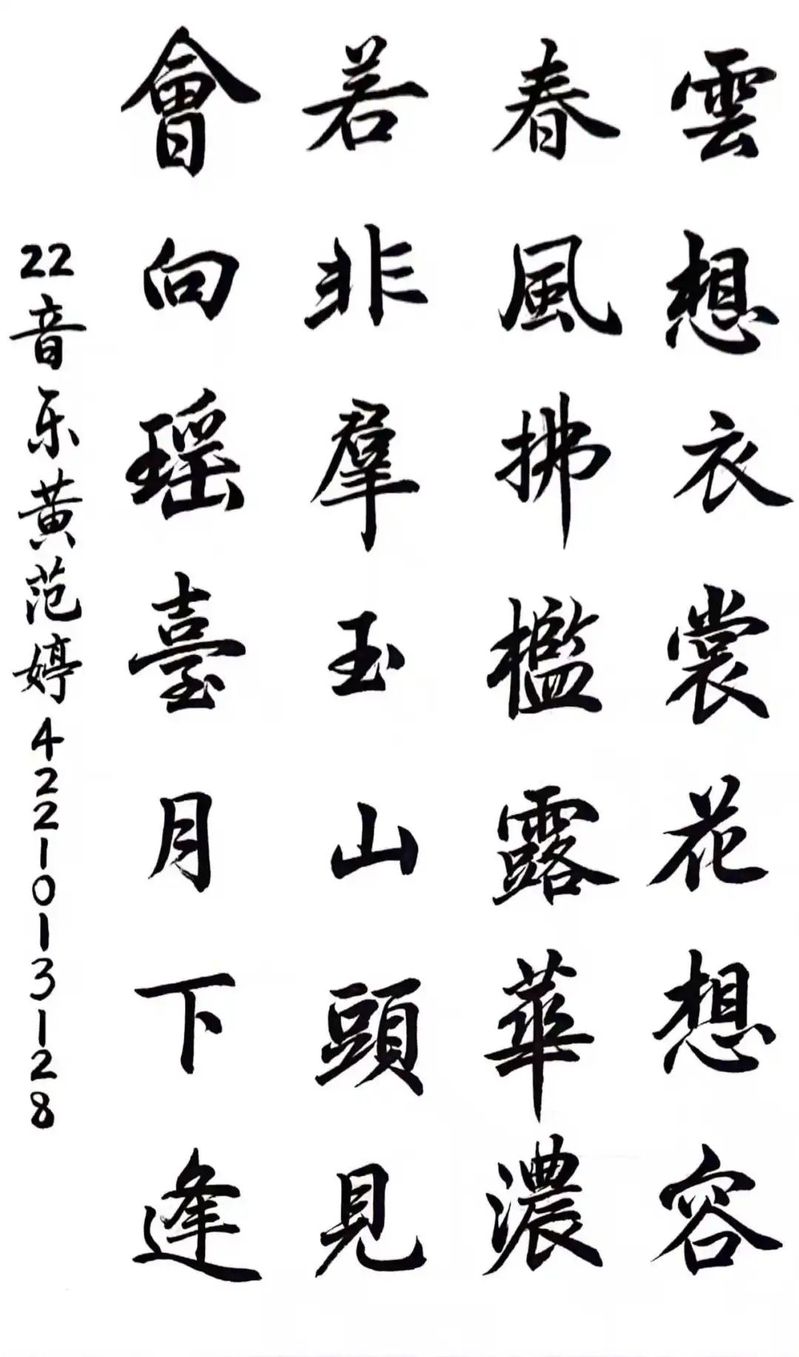 雲想衣裳花想容
春風拂檻露華濃
若非羣玉山頭見
會向瑶臺月下逢
22音乐黄范婷4221013128